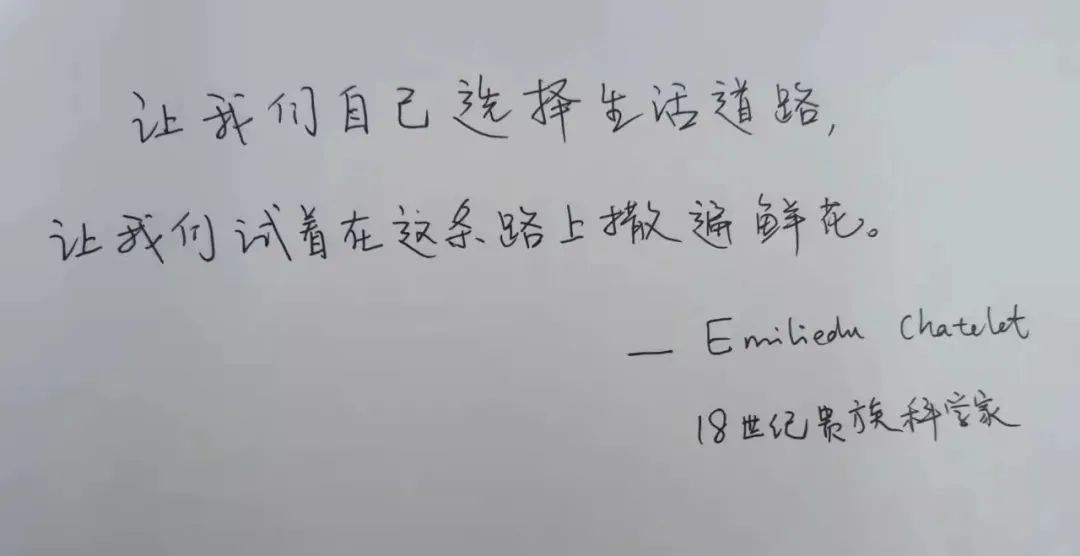 让我们自己选择生活道路,
让我们试着在这条路上撒遍鲜花。
— Emiliedu Chatelet
18世纪贵族科学家